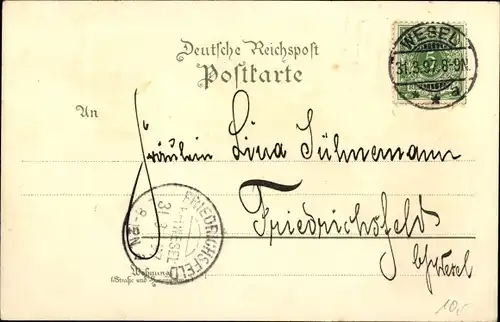 Deutsche Reichspost
Postkarte
WESEL
31.3.97.8-9N
An
Fräulein Lina Sühnemann
Friedrichsfeld
b/Wesel
FRIEDRICHSFELD
WESEL
31
8-12N
Wohnung
(Straße und
10,-